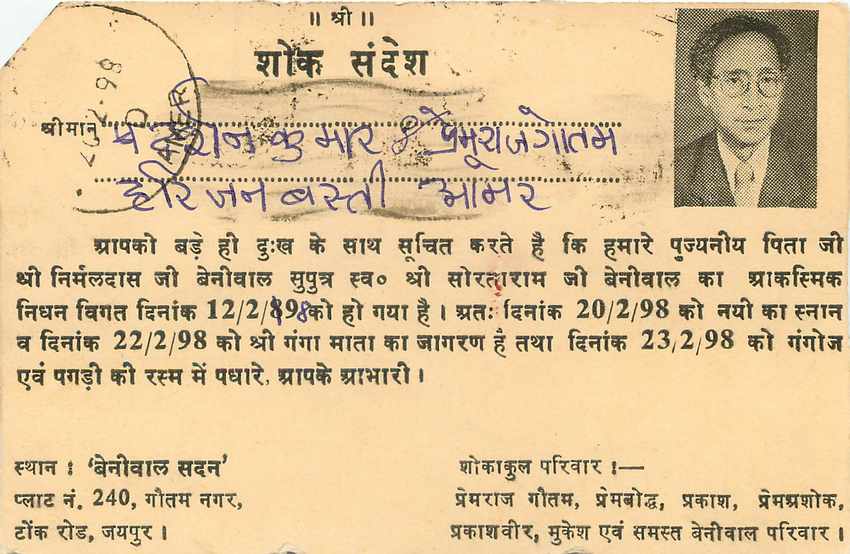 ॥ श्री ॥
शोक संदेश
2-98
AMER
श्रीमान् कुमार प्रेमराज गोतम
हरिजन बस्ती आमर
आपको बड़े ही दुःख के साथ सूचित करते है कि हमारे पुज्यनीय पिता जी
श्री निर्मलदास जी बेनीवाल सुपुत्र स्व० श्री सोरताराम जी बेनीवाल का आकस्मिक
निधन विगत दिनांक 12/2/98 को हो गया है । अतः दिनांक 20/2/98 को नयी का स्नान
व दिनांक 22/2/98 को श्री गंगा माता का जागरण है तथा दिनांक 23/2/98 को गंगोज
एवं पगड़ी की रस्म में पधारे, आपके आभारी ।
स्थान : 'बेनीवाल सदन'
प्लाट नं. 240, गौतम नगर,
टोंक रोड, जयपुर ।
शोकाकुल परिवार :—
प्रेमराज गौतम, प्रेमबोद्ध, प्रकाश, प्रेमअशोक,
प्रकाशवीर, मुकेश एवं समस्त बेनीवाल परिवार ।